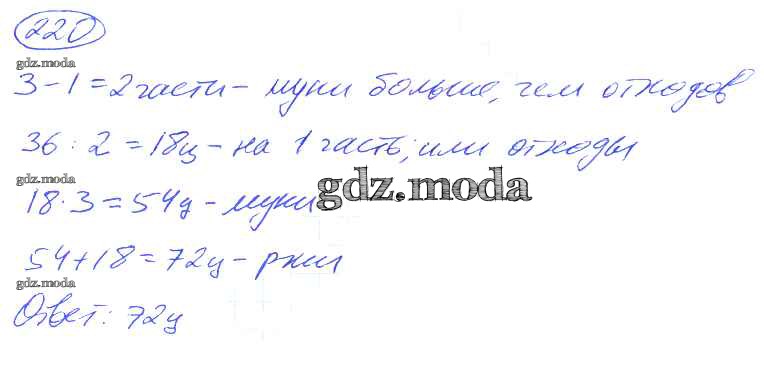 220
gdz.moda
3-1=2части - муки больше, чем отходов
36:2=18ц - на 1 часть, или отходы
gdz.moda
18·3=54ц - муки
gdz.moda
54+18=72ц - ржи
gdz.moda
Ответ: 72ц